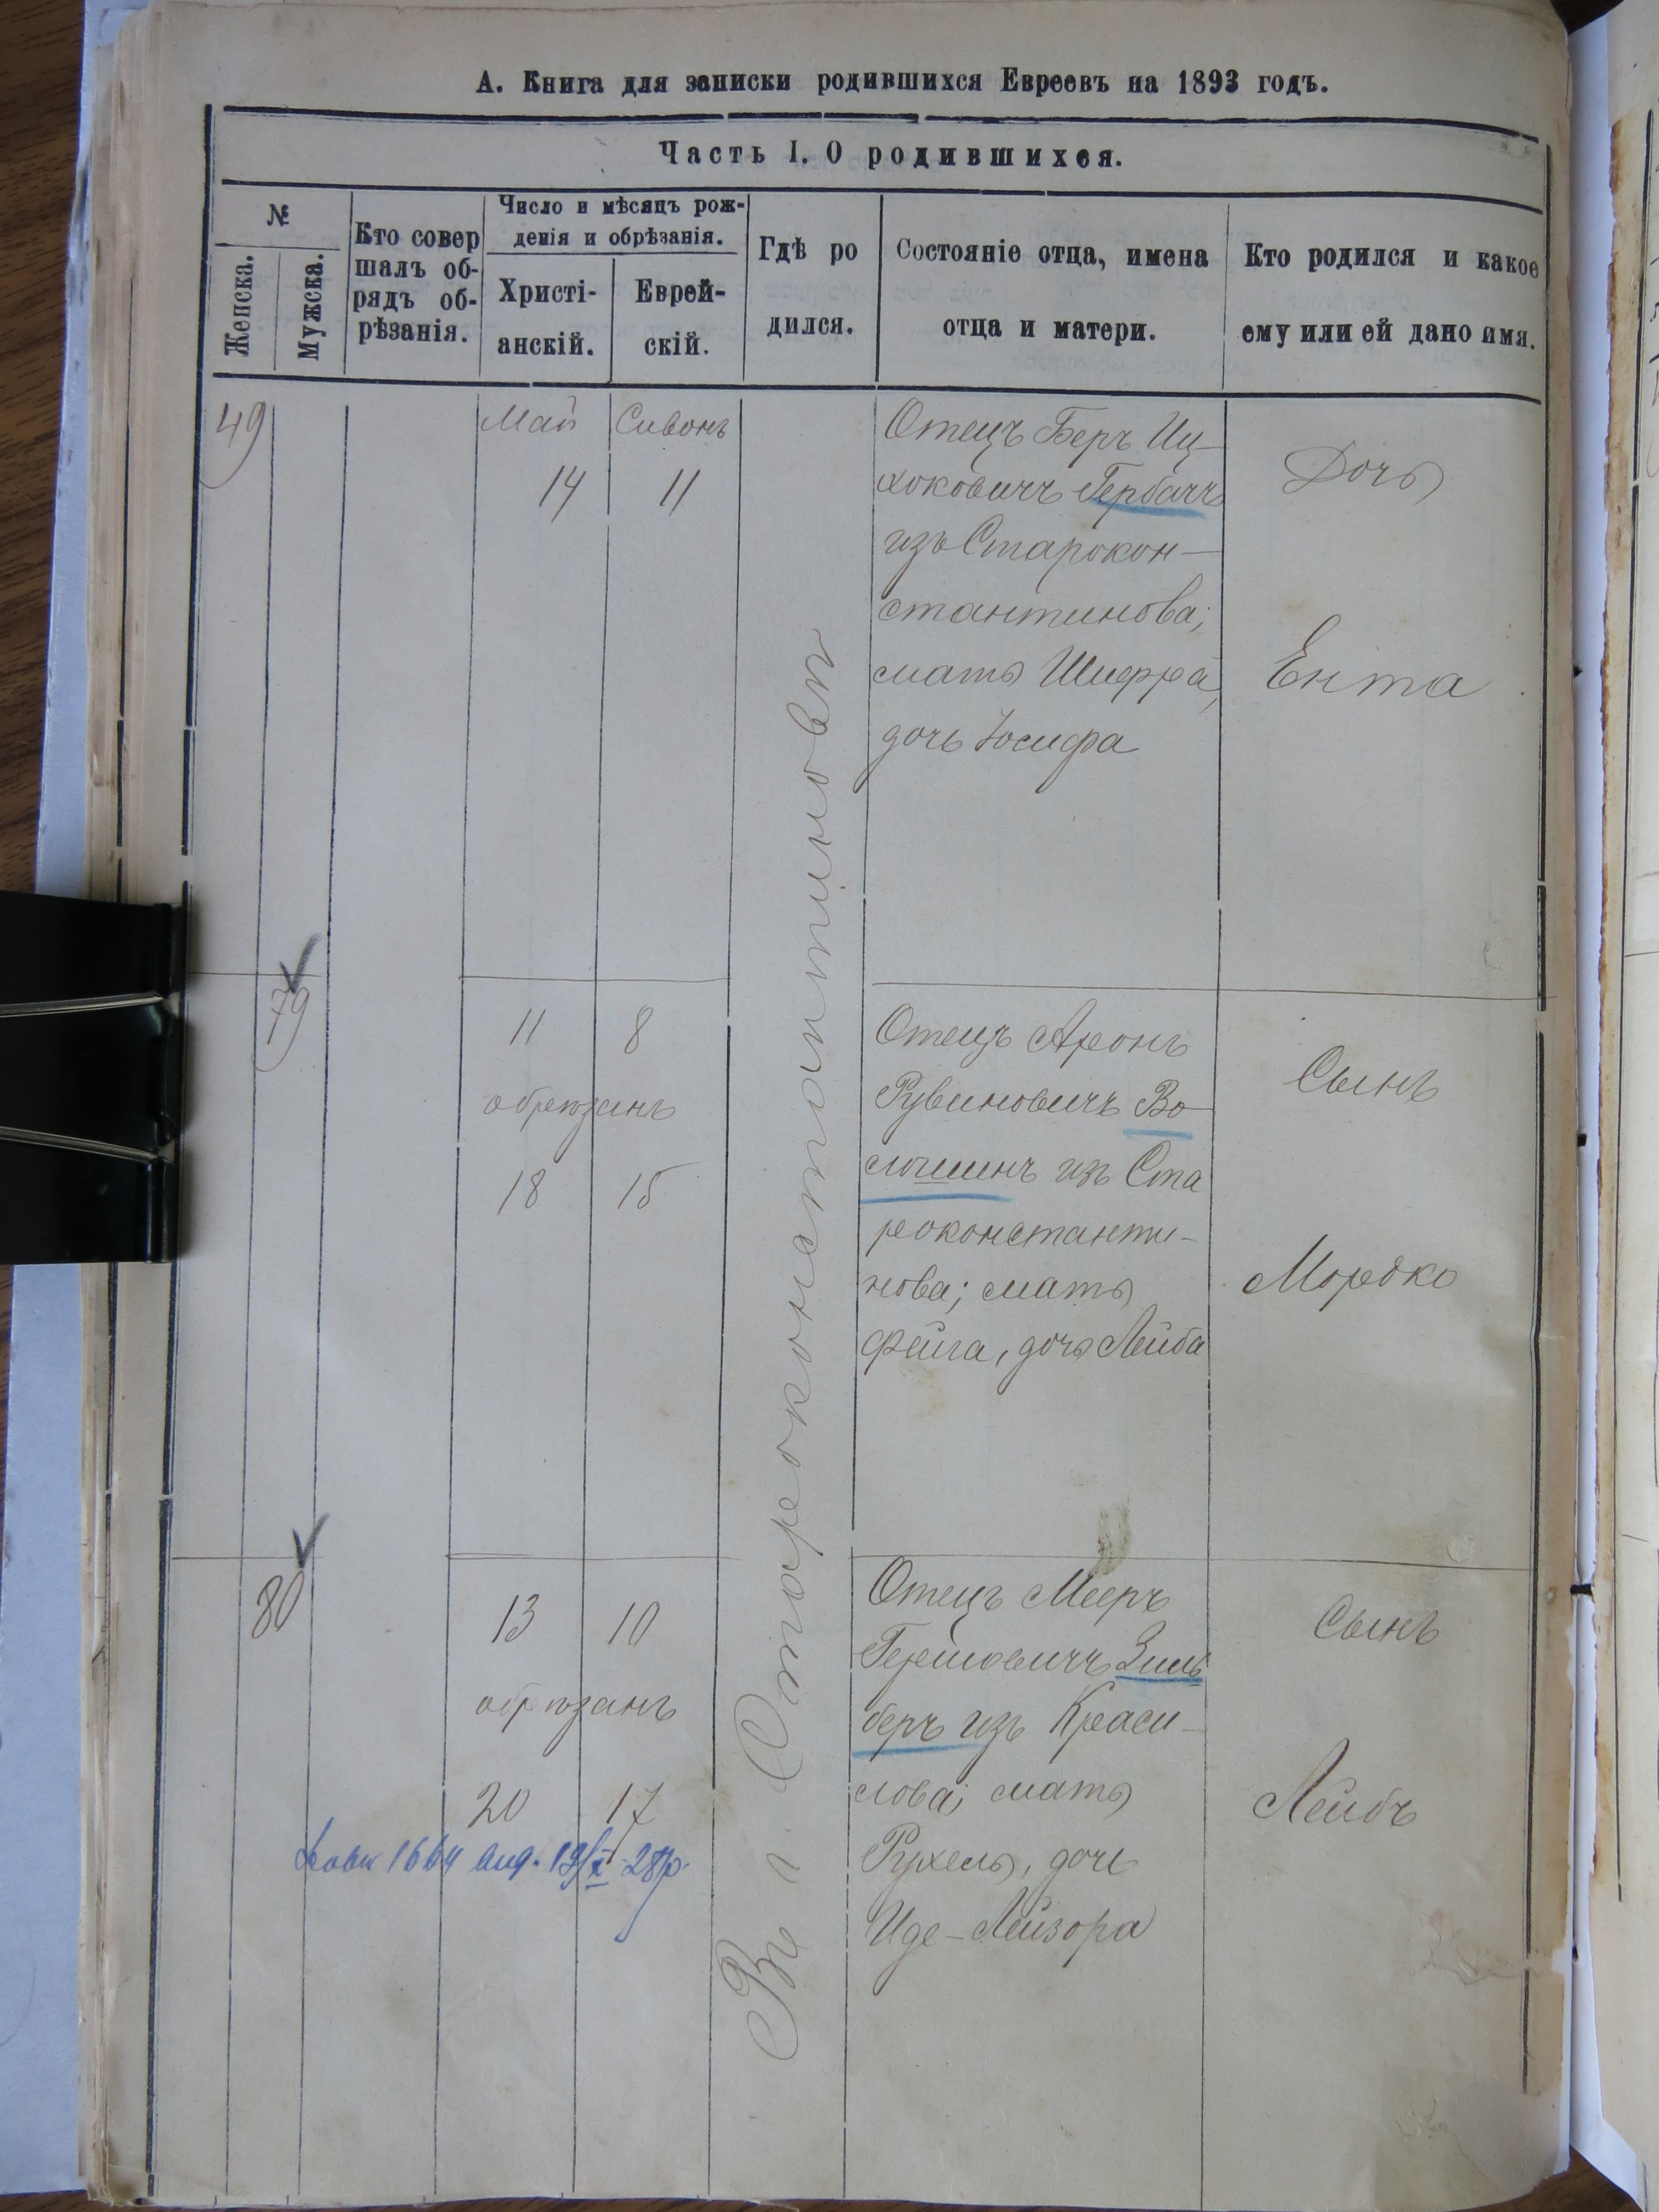 А. Книга для записки родившихся Евреевъ на 1893 годъ.
Часть I. О родившихся.
№
Женска.
Мужска.
Кто совер
шалъ об-
рядъ об-
рѣзанія.
Число и мѣсяцъ рож-
денія и обрѣзанія.
Христі-
анскій.
Еврей-
скій.
Гдѣ ро
дился.
Состояніе отца, имена
отца и матери.
Кто родился и какое
ему или ей дано имя.
49
Май
14
Сивонъ
11
Отецъ Беръ Иц-
хоковичъ Гербачъ
изъ Старокон-
стантинова;
мать Шифра,
дочь Іосифа
Дочь
Ента
79
11 8
обрѣзанъ
18 15
Отецъ Аронъ
Рувиновичъ Во-
лошинъ изъ Ста
роконстанти-
нова; мать
Фейга, дочь Лейба
Сынъ
Мордко
80
13 10
обрѣзанъ
20 17
Отецъ Мееръ
Гершовичъ Зиль
беръ изъ Краси-
лова; мать
Рухель, дочь
Иде-Лейзора
Сынъ
Лейбъ
Въ г. Староконстантиновѣ